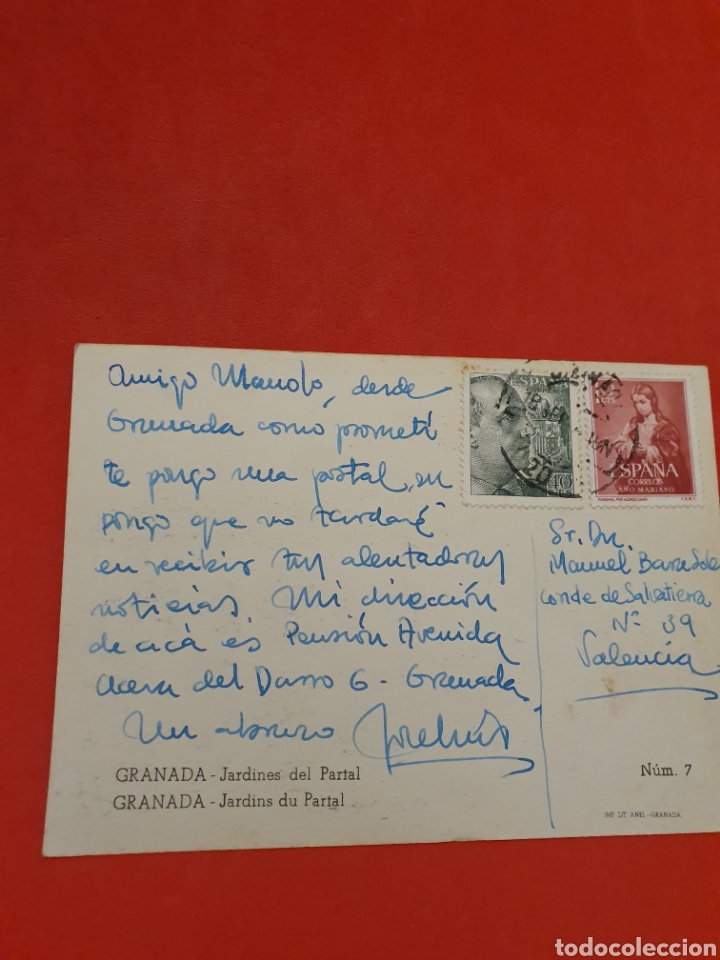 Amigo Manolo, desde
Granada como prometí
te pongo una postal, su
pongo que no tardaré
en recibir tus alentadoras
noticias. Mi dirección
de acá es Pensión Avenida
Acera del Darro 6 - Granada
Un abrazo José Luis
GRANADA - Jardines del Partal
GRANADA - Jardins du Partal
ESPAÑA
40
2 PTS
ESPAÑA
CORREOS
AÑO MARIANO
Sr. Dn.
Manuel
Conde de Salvatierra
Nº 39
Valencia
Núm. 7
IMP. LIT. ANEL.-GRANADA
todocoleccion